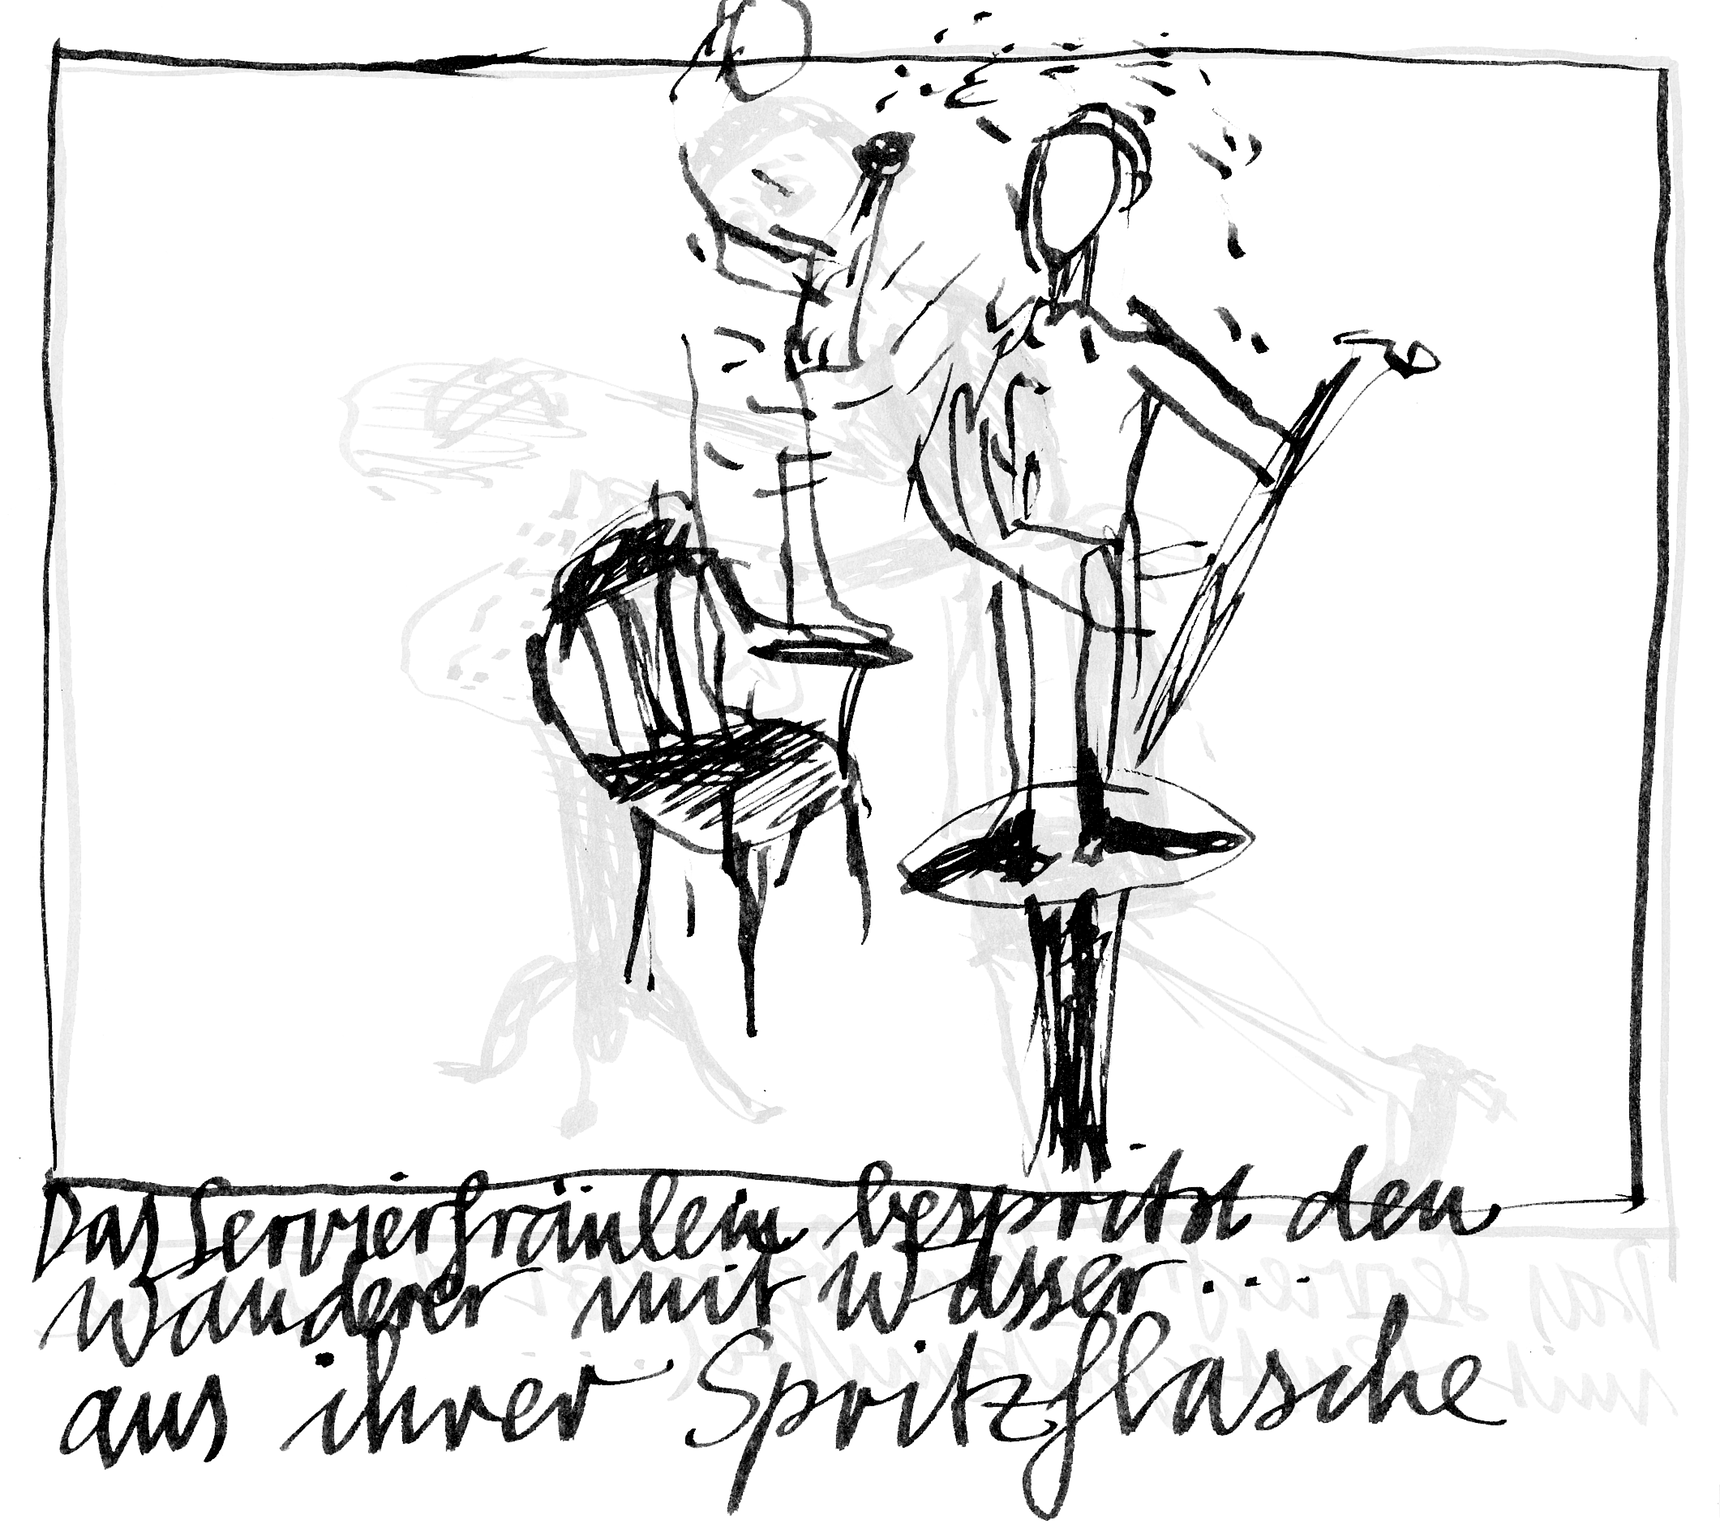 Das Servierfräulein bespritzt den
Wanderer mit Wasser....
aus ihrer Spritzflasche